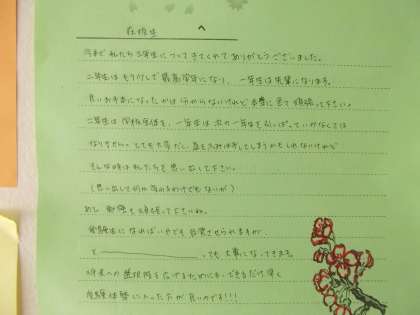 在校生 へ
今まで私たち3年生についてきてくれてありがとうございました。
二年生はもう少しで最高学年になり、一年生は先輩になります。
良いお手本になったかは分からないけれど本番に全て頑張って下さい。
二年生は学校全体を、一年生は次の一年生を引っぱっていかなくては
なりません。とても大変だし、道をふみはずしてしまうかもしれないけれど
そんな時は私たちを思い出して下さい。
(思い出して何か変わるわけでもないが)
あと、勉強も頑張って下さいね。
受験生になればいやでも自覚させられますが
と っても大事になってきます。
将来への選択肢を広げるためにも、できるだけ早く
受験体勢に入った方が良いのです!!!